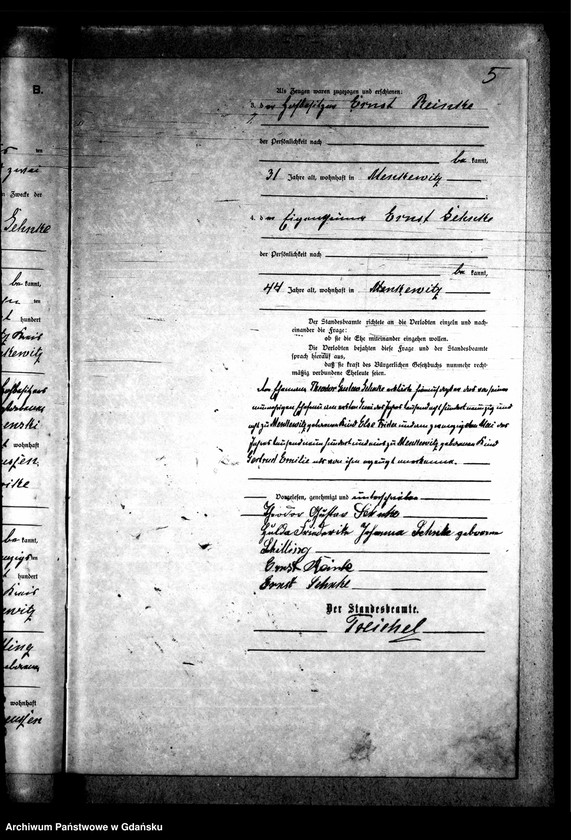 5
B.
Als Zeugen waren zugezogen und erschienen:
3. der Hofbesitzer Ernst Reinke
der Persönlichkeit nach
be kannt,
31 Jahre alt, wohnhaft in Menkewitz
;
4. der Eigentümer Ernst Sehnke
der Persönlichkeit nach
be kannt,
44 Jahre alt, wohnhaft in Menkewitz
Der Standesbeamte richtete an die Verlobten einzeln und nach-
einander die Frage:
ob sie die Ehe miteinander eingehen wollen.
Die Verlobten bejahten diese Frage und der Standesbeamte
sprach hierauf aus,
daß sie kraft des Bürgerlichen Gesetzbuchs nunmehr recht-
mäßig verbundene Eheleute seien.
Der Ehemann Theodor Gustav Sehnke erklärte hiermit, daß er das von seiner
nunmehrigen Ehefrau am ersten Juni des Jahres tausend acht hundert neunzig und
acht zu Menkewitz geborene Kind Else Frieda und am zwanzigsten Mai des
Jahres tausend neun hundert und eins zu Menkewitz geborene Kind
Gertrud Emilie als von ihm erzeugt anerkenne.
Vorgelesen, genehmigt und unterschrieben
Theodor Gustav Sehnke
Hulda Friederike Johanna Sehnke geborene
Schilling
Ernst Reinke
Ernst Sehnke
Der Standesbeamte.
Treichel
ten
Zwecke der
Sehnke
be kannt,
ten
hundert
Kreis
wohnhaft
be kannt,
hundert
Kreis
wohnhaft
Archiwum Państwowe w Gdańsku